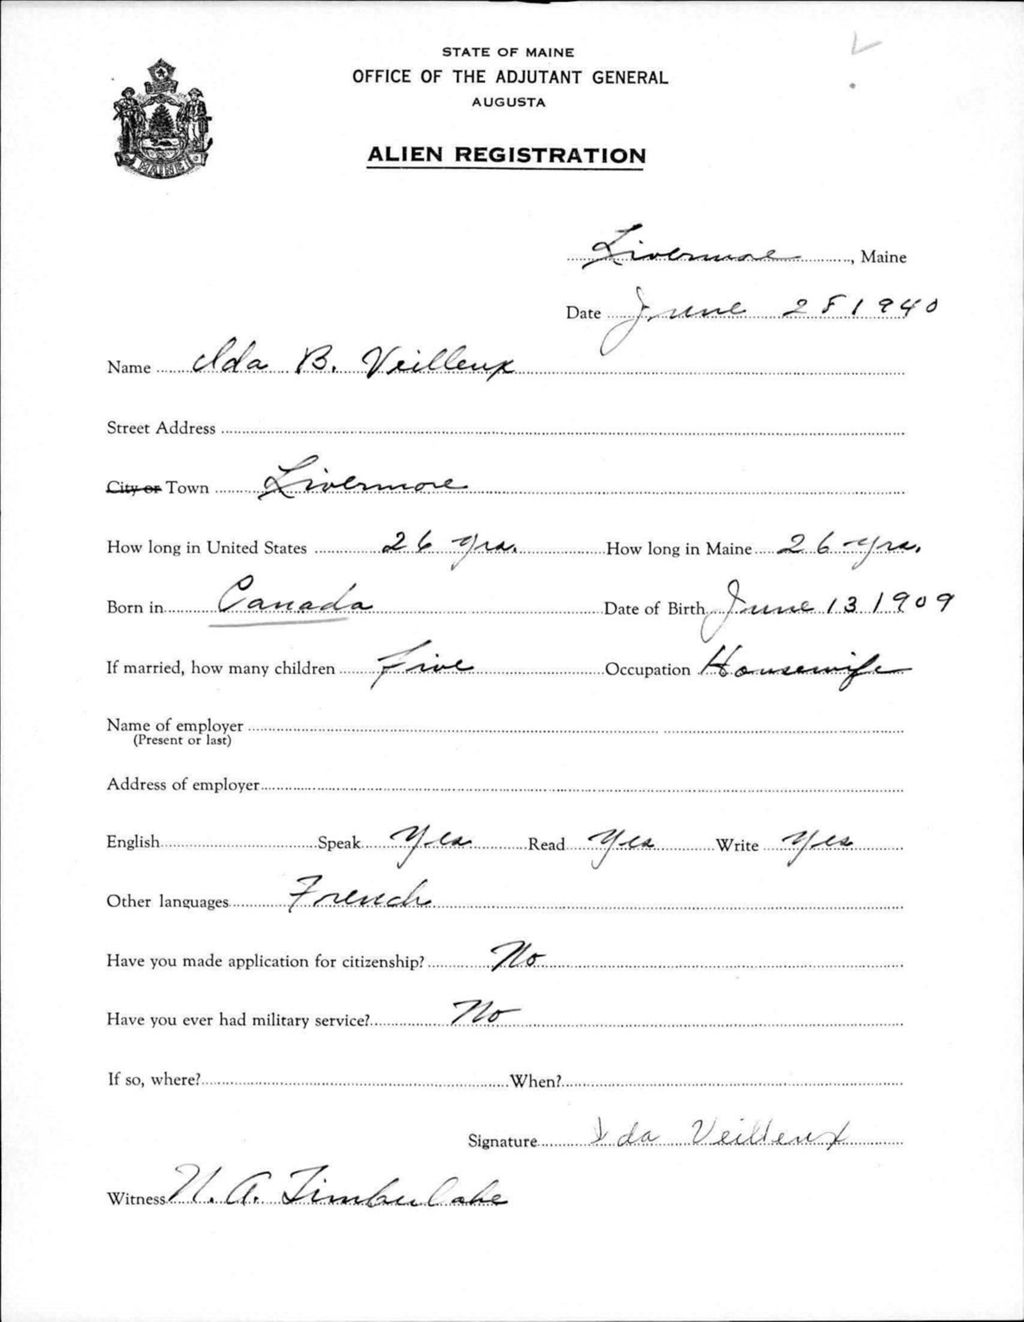 STATE OF MAINE
OFFICE OF THE ADJUTANT GENERAL
AUGUSTA
ALIEN REGISTRATION
MAINE
Livermore, Maine
Date June 28 1940
Name Ida B. Veilleux
Street Address
City or Town Livermore
How long in United States 26 yrs. How long in Maine 26 yrs.
Born in Canada Date of Birth June 13 1909
If married, how many children five Occupation Housewife
Name of employer
(Present or last)
Address of employer
English Speak Yes Read Yes Write Yes
Other languages French
Have you made application for citizenship? No
Have you ever had military service? No
If so, where? When?
Signature Ida Veilleux
Witness H. A. Timberlake